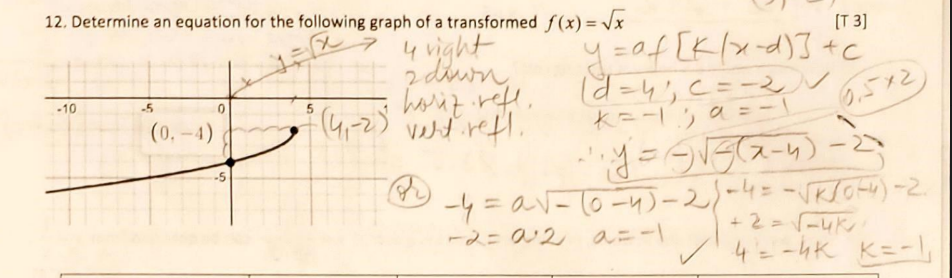 12. Determine an equation for the following graph of a transformed f(x) = √x [T 3]
y = √x
4 right
2 down
horiz. refl.
vert. refl.
y = af[k(x-d)] + c
d = 4; c = -2 ✓
k = -1; a = -1
0,5×2
∴ y = -√-(x-4) - 2
-10 -5 0 5
-5
(0, -4)
(4, -2)
or
-4 = a√-(0-4) - 2
-2 = a·2 a = -1
-4 = -√k(0-4) - 2
+2 = √-4k
✓ 4 = -4k k = -1